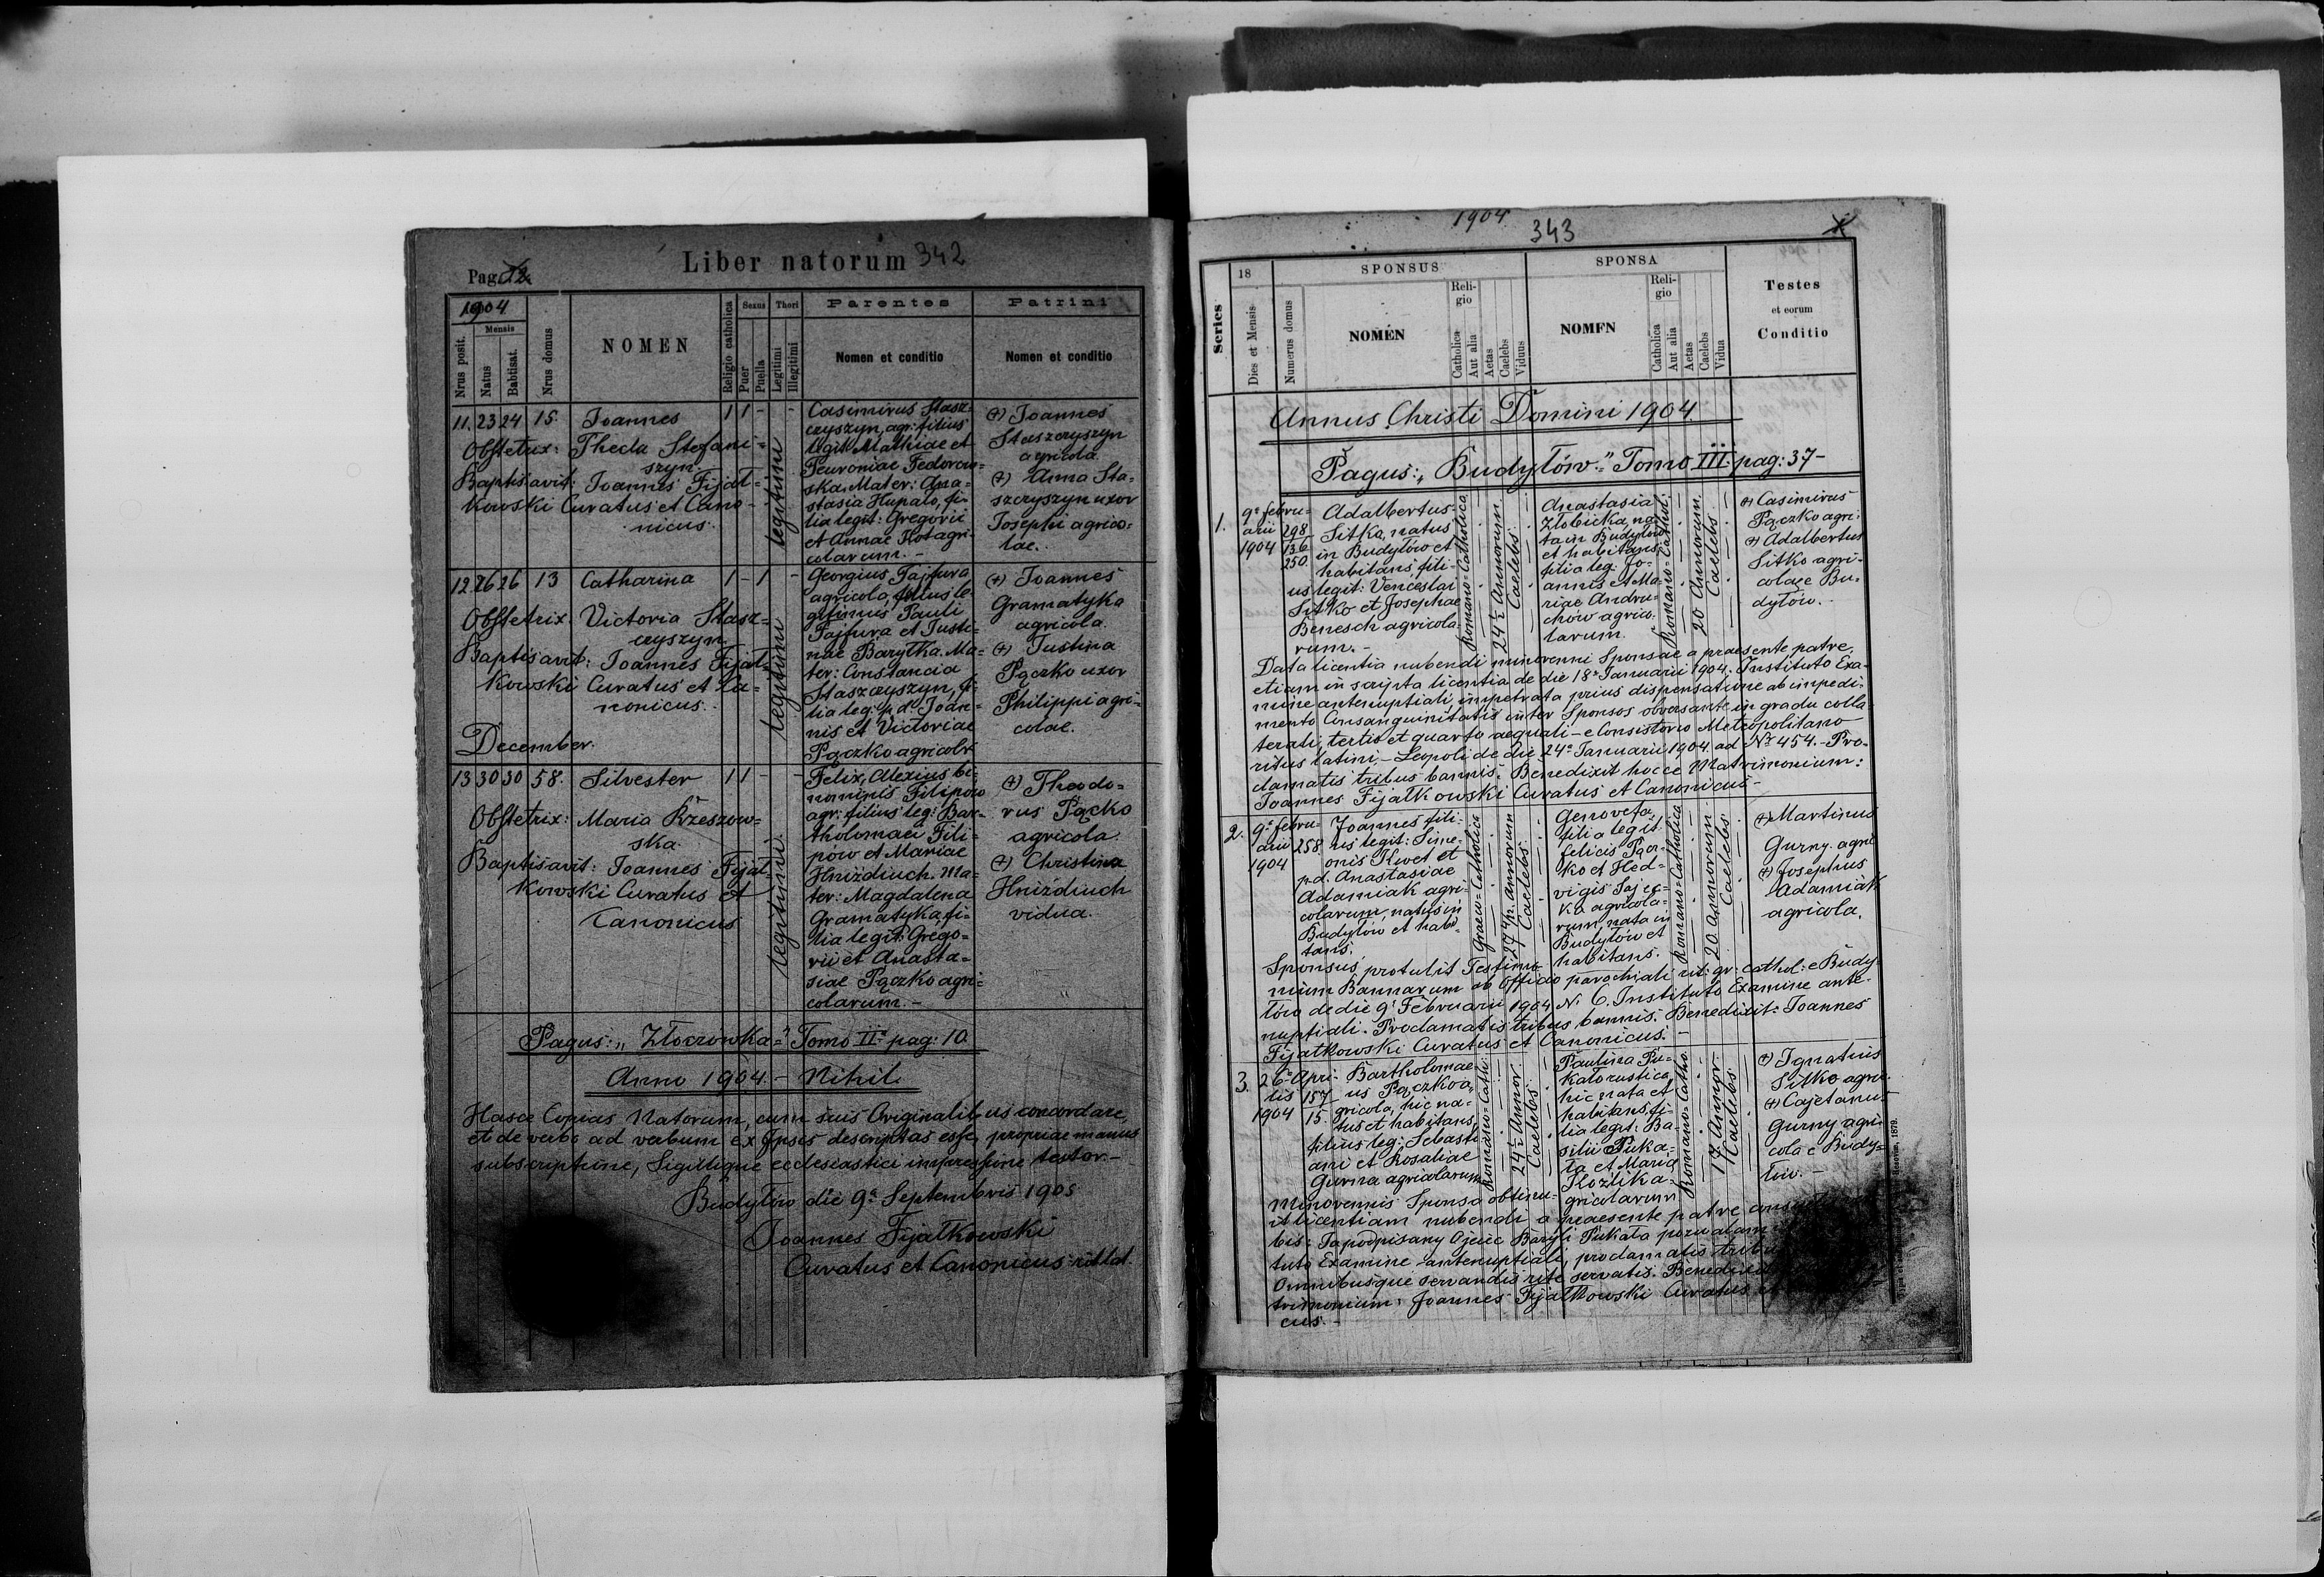 Pag. 12
Liber natorum 342
1904
Mensis
Nrus posit.
Natus
Babtisat.
Nrus domus
NOMEN
Religio catholica
Sexus
Puer
Puella
Thori
Legitimi
Illegitimi
Parentes
Nomen et conditio
Patrini
Nomen et conditio
11. 23 24 15. Joannes 1 1 - -
Obstetrix: Thecla Stefani=
szyn.
Baptisavit: Joannes Fijał=
kowski Curatus et Cano-
nicus.
legitimi
Casimirus Stasz=
czyszyn, agr: filius
legit: Mathiae et
Peuroniae Fedorow=
ska. Mater: Ana=
stasia Hupało, fi=
lia legit: Gregorii
et Annae Kot agri=
colarum.-
(+) Joannes
Staszczyszyn
agricola
(+) Anna Sta=
szczyszyn uxor
Josephi agrico=
lae.
12 26 26 13 Catharina 1 - 1 -
Obstetrix: Victoria Stasz=
czyszyn
Baptisavit: Joannes Fijał=
kowski Curatus et Ca=
nonicus.
legitimi
Georgius Fajfura
agricola, filius le=
gitimus Pauli
Fajfura et Justi=
nae Baryłka. Ma=
ter: Constancia
Staszczyszyn, fi=
lia leg: p. d. Joan=
nis et Victoriae
Pączko agricolr
(+) Joannes
Gramatyka
agricola.
(+) Justina
Pączko uxor
Philippi agri=
colae.
December.
13 30 30 58. Silvester 1 1 - -
Obstetrix: Maria Krzeszow=
ska.
Baptisavit: Joannes Fijał=
kowski Curatus et
Canonicus
legitimi
Felix, Alexius bi=
nominis Filipów
agr: filius leg: Bar=
tholomaei Fili=
pów et Mariae
Hniździuch. Ma=
ter: Magdalena
Gramatyka, fi=
lia legit: Grego=
rii et Anasta=
siae Pączko agri=
colarum.-
(+) Theodo=
rus Pącko
agricola.
(+) Christina
Hniździuch
vidua.
Pagus: „Złoczówka" Tomo II pag: 10.
Anno 1904.- Nihil.
Hasce Copias Natorum, cum suis Originalibus concordare,
et de verbo ad verbum ex Ipsis descriptas esse, propriae manus
subscriptione, Sigillique ecclesiastici impressione testor.-
Budyłów die 9a Septembris 1905
Joannes Fijałkowski
Curatus et Canonicus rit lat.
1904
343
Series
18
Dies et Mensis
Numerus domus
SPONSUS
NOMEN
Religio
Catholica
Aut alia
Aetas
Caelebs
Viduus
SPONSA
NOMEN
Religio
Catholica
Aut alia
Aetas
Caelebs
Vidua
Testes
et eorum
Conditio
Annus Christi Domini 1904
Pagus: „Budyłów" Tomo III pag: 37-
1.
9a febru=
arii
1904
298
136
250
Adalbertus
Sitko, natus
in Budyłów et
habitans fili=
us legit: Venceslai
Sitko et Josephae
Benesch agricola=
rum.-
Romano=Catholica
24½ Annorum
Caelebs
Anastasia
Złobicka, na=
ta in Budyłów
et habitans,
filia leg: Jo=
annis et Ma=
riae Andru=
chów agrico=
larum.
Romano-Cathol:
20 Annorum
Caelebs
(+) Casimirus
Pączko agri:
(+) Adalbertus
Sitko agri=
colae e Bu=
dyłów.-
Data licentia nubendi minorenni Sponsae a praesente patre,
etiam in scripta licentia de die 18a Januarii 1904; Instituto Exa=
mine antenuptiali, impetrata prius dispensatione ab impedi=
mento Consanguinitatis inter Sponsos obversante in gradu colla=
terali, tertio et quarto aequali - e Consistorio Metropolitano
ritus latini - Leopoli de die 24a Januarii 1904 ad No 454.- Pro=
clamatis tribus bannis. Benedixit hocce Matrimonium:
Joannes Fijałkowski Curatus et Canonicus-
2.
9a febru=
arii
1904
258
Joannes fili=
us legit: Sime=
onis Kwet et
p.d. Anastasiae
Adamiak agri=
colarum, natus in
Budyłów et habi=
tans.
Graeco-Catholica
Caelebs
Genovefa,
filia legit:
felicis Pącz=
ko et Hed=
vigis Sajec=
ka agricola=
rum, nata in
Budyłów et
habitans.
Romano-Catholica
20. Annorum
Caelebs
(+) Martinus
Gurny. agric
(+) Josephus
Adamiak
agricola.
Sponsus protulit Testimo=
nium Bannorum ab Officio parochiali rit: gr: cathol: e Budy=
łów de die 9a Februarii 1904 No 6. Instituto Examine ante=
nuptiali. Proclamatis tribus bannis. Benedixit: Joannes
Fijałkowski Curatus et Canonicus.-
3.
26a Apri=
lis
1904
157
15.
Bartholomae=
us Pączko a=
gricola, hic na=
tus et habitans,
filius leg: Sebasti=
ani et Rosaliae
Gurna agricolarum
Romano-Cath:
24½ Annor.
Caelebs
Paulina Pu=
kało rustica,
hic nata et
habitans, fi=
lia legit: Ba=
silii Pukа=
ła et Maria
agricolarum
Romano-Catho.
17. Annor.
Caelebs
(+) Ignatius
Sitko agri.
(+) Cajetanus
Gurny agri=
cola e Budy=
łów.-
Minorennis Sponsa obtinu=
it licentiam nubendi a praesente patre
bis: Ja podpisany Ojciec Bazyli Pukała pozwalam
tuto Examine antenuptiali, proclamatis tribus
Omnibusque servandis rite servatis. Benedixit
trimonium: Joannes Fijałkowski Curatus et
cus.-